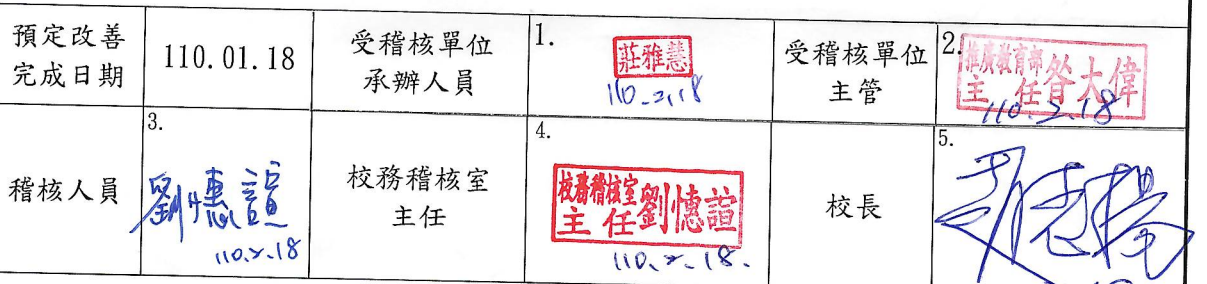 預定改善
完成日期
110.01.18
受稽核單位
承辦人員
1.
莊雅慧
110.2.18
受稽核單位
主管
2.
推廣教育部
主任 昝大偉
110.2.18
稽核人員
3.
劉憓諠
110.2.18
校務稽核室
主任
4.
校務稽核室
主任 劉憓諠
110.2.18.
校長
5.